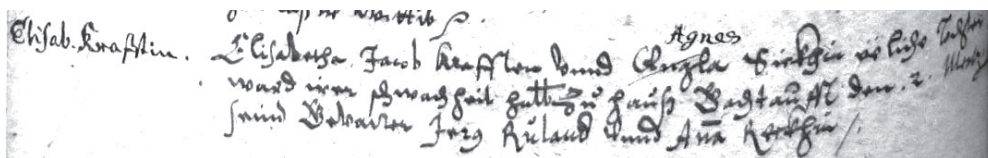 Elisab. Krafftin.
Agnes
Elisabetha Jacob Krafften vnnd Angla Sieckhin eeliche Tochter
ward irer schwachheit halb zu hauß Bachtaufft den. 2. Martij
seind Gevatter Jerg Ruland vnnd Aña Keckhin /.